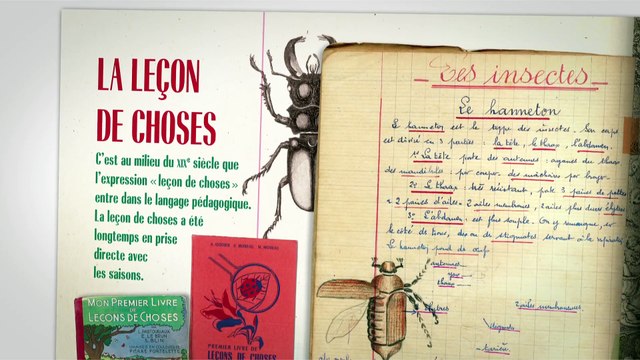 LA LEÇON
DE CHOSES
C'est au milieu du XIXe siècle que
l'expression « leçon de choses »
entre dans le langage pédagogique.
La leçon de choses a été
longtemps en prise
directe avec
les saisons.
MON PREMIER LIVRE
DE
LEÇONS DE CHOSES
PREMIER LIVRE DE
LEÇONS DE CHOSES
Les insectes
Le hanneton
Le hanneton est le type des insectes. Son corps
est divisé en 3 parties : la tête, le thorax, l'abdomen.
1° La tête porte des antennes : organes du
des mandibules pour couper, des mâchoires pour
2° Le thorax très résistant, porte 3 paires de pattes
2 paires d'ailes : 2 ailes membraneuses, 2 ailes plus dures
3° L'abdomen : est plus souple. On y remarque, sur
le côté de trous, des stigmates servant à la
Le hanneton pond des œufs
antennes
yeux
thorax
élytres
2 ailes membraneuses
stigmates